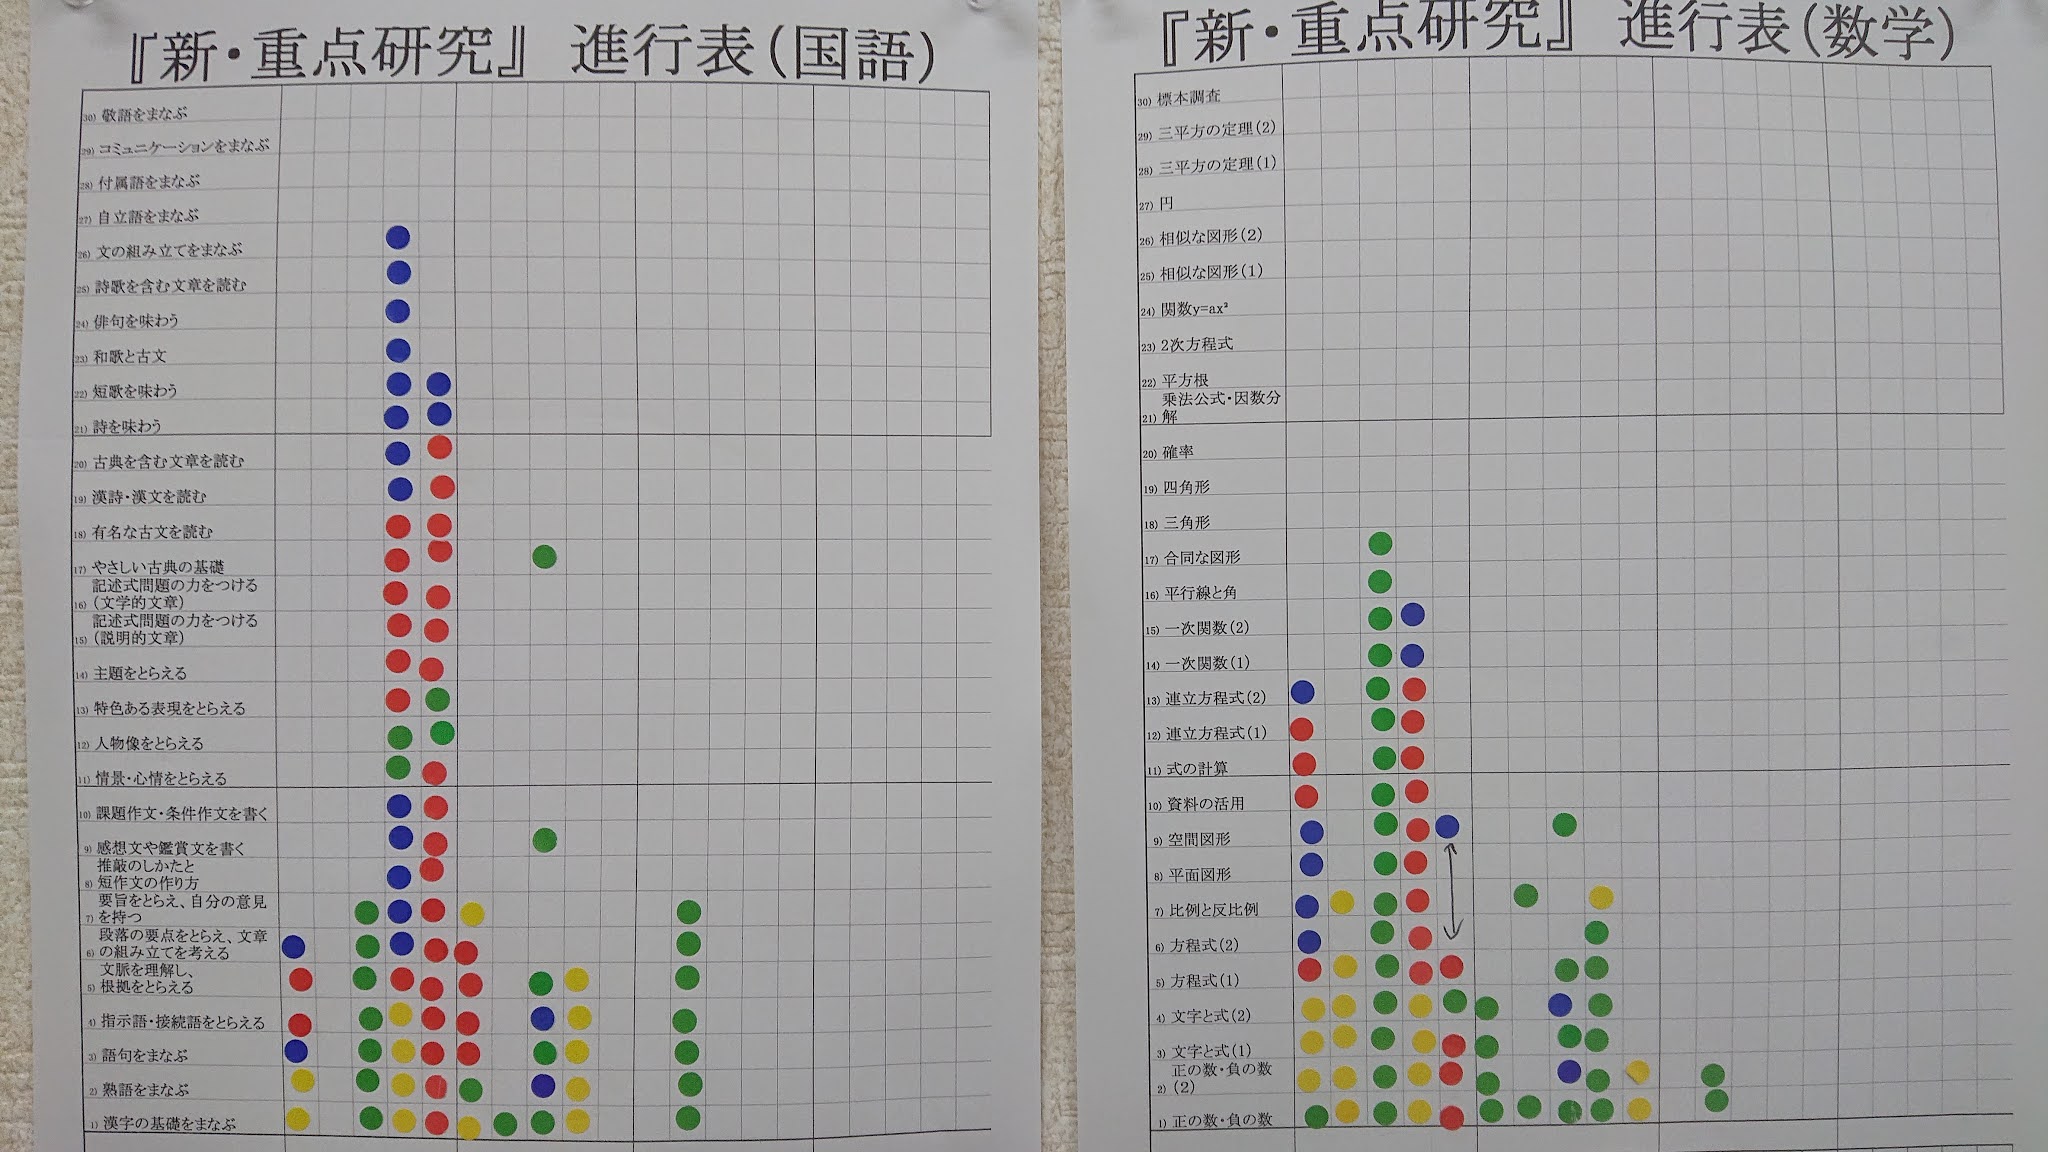 『新・重点研究』 進行表(国語)
30) 敬語をまなぶ
29) コミュニケーションをまなぶ
28) 付属語をまなぶ
27) 自立語をまなぶ
26) 文の組み立てをまなぶ
25) 詩歌を含む文章を読む
24) 俳句を味わう
23) 和歌と古文
22) 短歌を味わう
21) 詩を味わう
20) 古典を含む文章を読む
19) 漢詩・漢文を読む
18) 有名な古文を読む
17) やさしい古典の基礎
記述式問題の力をつける
16) (文学的文章)
記述式問題の力をつける
15) (説明的文章)
14) 主題をとらえる
13) 特色ある表現をとらえる
12) 人物像をとらえる
11) 情景・心情をとらえる
10) 課題作文・条件作文を書く
9) 感想文や鑑賞文を書く
推敲のしかたと
8) 短作文の作り方
要旨をとらえ、自分の意見
7) を持つ
段落の要点をとらえ、文章
6) の組み立てを考える
文脈を理解し、
5) 根拠をとらえる
4) 指示語・接続語をとらえる
3) 語句をまなぶ
2) 熟語をまなぶ
1) 漢字の基礎をまなぶ
『新・重点研究』 進行表(数学)
30) 標本調査
29) 三平方の定理(2)
28) 三平方の定理(1)
27) 円
26) 相似な図形(2)
25) 相似な図形(1)
24) 関数y=ax²
23) 2次方程式
22) 平方根
乗法公式・因数分
21) 解
20) 確率
19) 四角形
18) 三角形
17) 合同な図形
16) 平行線と角
15) 一次関数(2)
14) 一次関数(1)
13) 連立方程式(2)
12) 連立方程式(1)
11) 式の計算
10) 資料の活用
9) 空間図形
8) 平面図形
7) 比例と反比例
6) 方程式(2)
5) 方程式(1)
4) 文字と式(2)
3) 文字と式(1)
正の数・負の数
2) (2)
1) 正の数・負の数